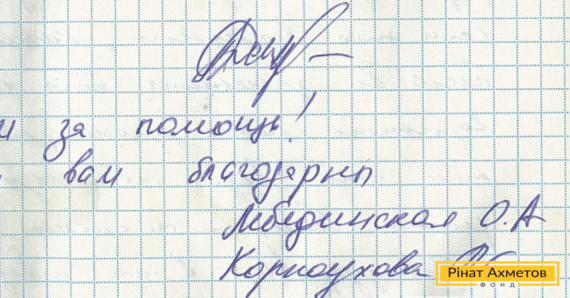 за помощь!
вам благодарны
Лебединская О.А
Корноухова
Рінат Ахметов
ФОНД